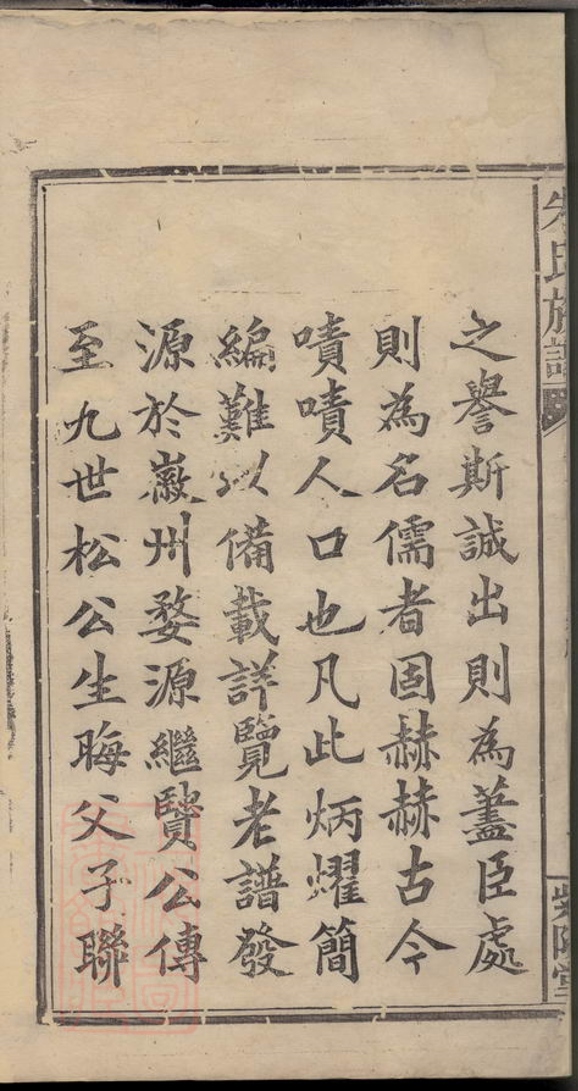 朱氏族譜
紫陽堂
之譽斯誠出則為藎臣處
則為名儒者固赫赫古今
嘖嘖人口也凡此炳耀簡
編難以備載詳覽老譜發
源於徽州婺源繼贒公傳
至九世松公生晦父子聯